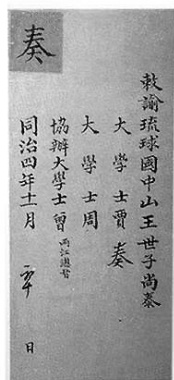 敕諭琉球國中山王世子尚泰
大學士賈 奏
大學士周
協辦大學士曾 兩江總督
同治四年十一月 日
奏